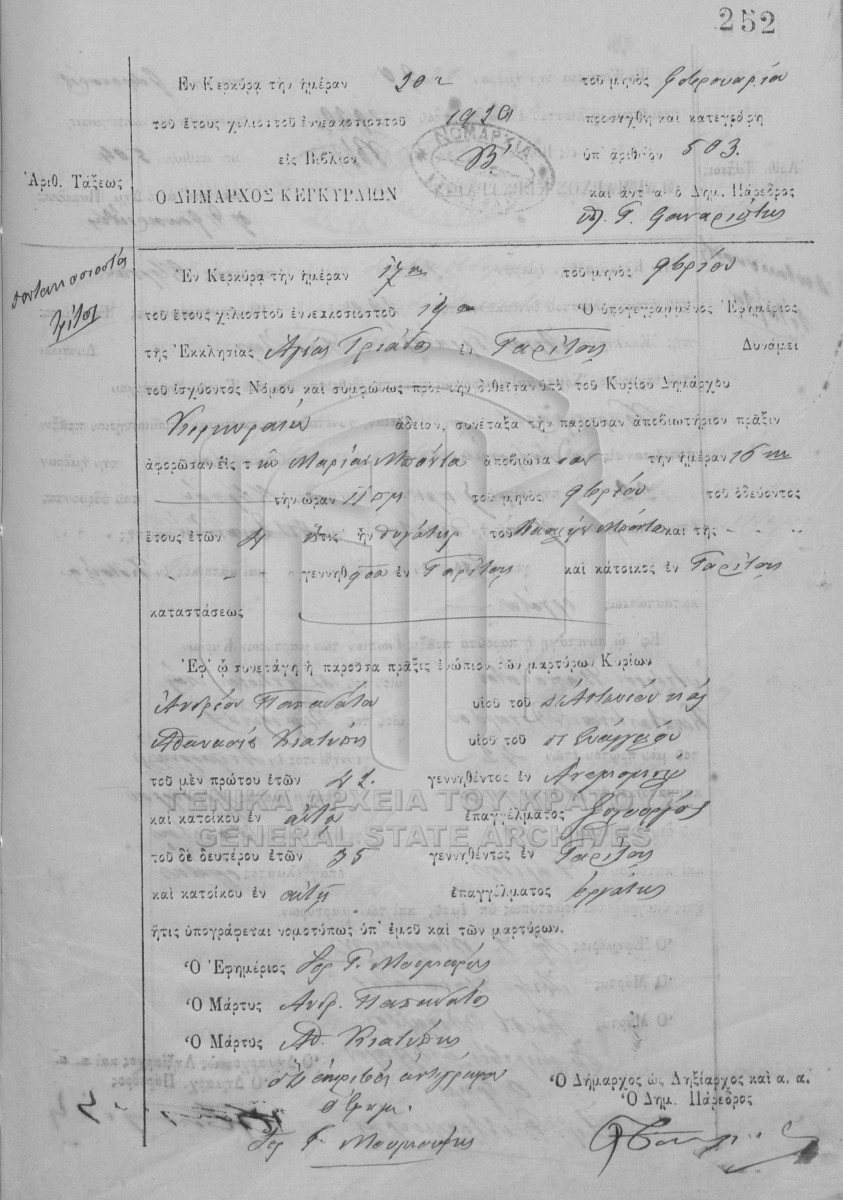 252
Ἐν Κερκύρᾳ τὴν ἡμέραν 20 τοῦ μηνὸς Φεβρουαρίου
τοῦ ἔτους χιλιοστοῦ ἐννεακοσιοστοῦ 1929 προσήχθη καὶ κατεγράφη
εἰς Βιβλίον Β' ὑπ' ἀριθμὸν 503.
ΝΟΜΑΡΧΙΑ
Ἀριθ. Τάξεως
Ὁ ΔΗΜΑΡΧΟΣ ΚΕΡΚΥΡΑΙΩΝ καὶ ἀντ' α' ὁ Δημ. Πάρεδρος
Γ. Φαναριώτης
πεντακοσιοστὸν
τρίτον
Ἐν Κερκύρᾳ τὴν ἡμέραν 17ην τοῦ μηνὸς Φβρίου
τοῦ ἔτους χιλιοστοῦ ἐννεακοσιοστοῦ Ὁ ὑπογεγραμμένος Ἐφημέριος
τῆς Ἐκκλησίας Ἁγίας Τριάδος ἐν Γαρίτσῃ Δυνάμει
τοῦ ἰσχύοντος Νόμου καὶ συμφώνως πρὸς τὴν δοθεῖσαν ὑπὸ τοῦ Κυρίου Δημάρχου
Κερκυραίων ἄδειαν, συνέταξα τὴν παροῦσαν ἀποβιωτήριον πρᾶξιν
ἀφορῶσαν εἰς τὴν Μαρίαν Μπόντα ἀποβιώσασαν τὴν ἡμέραν 16ην
τὴν ὥραν πμ τοῦ μηνὸς Φβρίου τοῦ ὁδεύοντος
ἔτους ἐτῶν ἥτις ἦν θυγάτηρ τοῦ Μπόντα καὶ τῆς
γεννηθεῖσα ἐν Γαρίτσῃ καὶ κάτοικος ἐν Γαρίτσῃ
καταστάσεως
Ἐφ' ᾧ συνετάγη ἡ παροῦσα πρᾶξις ἐνώπιον τῶν μαρτύρων Κυρίων
Ἀνδρέου Παπανάτου υἱοῦ τοῦ π. Ἀντωνίου καὶ
Ἀθανασίου Κιατίπη υἱοῦ τοῦ π. Εὐαγγέλου
τοῦ μὲν πρώτου ἐτῶν 42 γεννηθέντος ἐν Ἀνεμομύλῳ
ΓΕΝΙΚΑ ΑΡΧΕΙΑ ΤΟΥ ΚΡΑΤΟΥΣ
καὶ κατοίκου ἐν αὐτῷ ἐπαγγέλματος ξυλουργὸς
GENERAL STATE ARCHIVES
τοῦ δὲ δευτέρου ἐτῶν 35 γεννηθέντος ἐν Γαρίτσῃ
καὶ κατοίκου ἐν αὐτῇ ἐπαγγέλματος ἐργάτης
ἥτις ὑπογράφεται νομοτύπως ὑπ' ἐμοῦ καὶ τῶν μαρτύρων.
Ὁ Ἐφημέριος Ἱερ. Γ.
Ὁ Μάρτυς Ἀνδρ. Παπανάτος
Ὁ Μάρτυς Ἀθ. Κιατίπης
Ὅτι ἀκριβὲς ἀντίγραφον
Ὁ Δήμαρχος ὡς Ληξίαρχος καὶ α. α.
Ὁ Ἐφημ.
Ὁ Δημ. Πάρεδρος
Ἱερ. Γ.